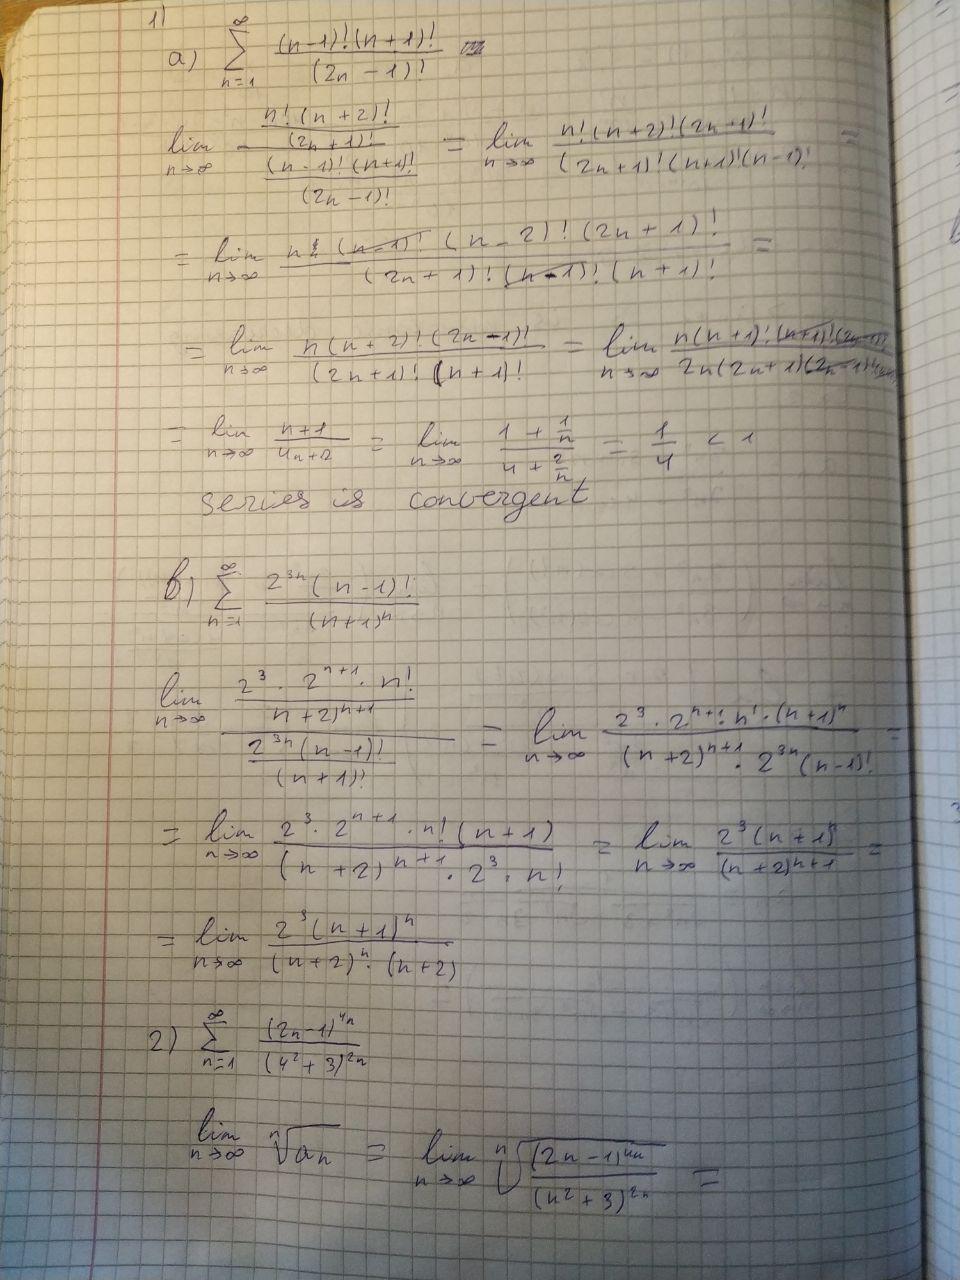 1)
a) ∑_{n=1}^{∞} (n-1)!(n+1)! / (2n-1)!
lim_{n→∞} (n!(n+2)! / (2n+1)!) / ((n-1)!(n+1)! / (2n-1)!) = lim_{n→∞} n!(n+2)!(2n-1)! / (2n+1)!(n+1)!(n-1)! =
= lim_{n→∞} n (n-1)! (n-2)! (2n+1)! / (2n+1)! (n-1)! (n+1)! =
= lim_{n→∞} n(n+2)!(2n-1)! / (2n+1)!(n+1)! = lim_{n→∞} n(n+1)!(n+1)!(2n-1)! / 2n(2n+1)(2n-1)!
= lim_{n→∞} (n+1) / (4n+2) = lim_{n→∞} (1 + 1/n) / (4 + 2/n) = 1/4 < 1
series is convergent
b) ∑_{n=1}^{∞} 2^{3n}(n-1)! / (n+1)^n
lim_{n→∞} (2^3 · 2^{n+1} · n! / n+2)^{n+1}) / (2^{3n}(n-1)! / (n+1)!) = lim_{n→∞} 2^3 · 2^{n+1} · n! · (n+1)^n / (n+2)^{n+1} · 2^{3n}(n-1)! =
= lim_{n→∞} 2^3 · 2^{n+1} · n! (n+1) / (n+2)^{n+1} · 2^3 · n! = lim_{n→∞} 2^3 (n+1)^n / (n+2)^{n+1} =
= lim_{n→∞} 2^3 (n+1)^n / (n+2)^n · (n+2)
2) ∑_{n=1}^{∞} (2n-1)^{4n} / (4^2+3)^{2n}
lim_{n→∞} ⁿ√a_n = lim_{n→∞} ⁿ√((2n-1)^{4n} / (n^2+3)^{2n}) =